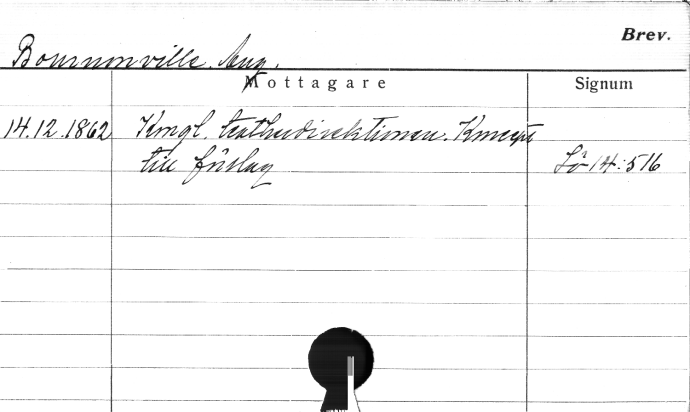 Brev.
Bournonville, Aug.
Mottagare Signum
14.12.1862 Kungl. teaterdirektionen. Koncept
till förslag Lö 14:516